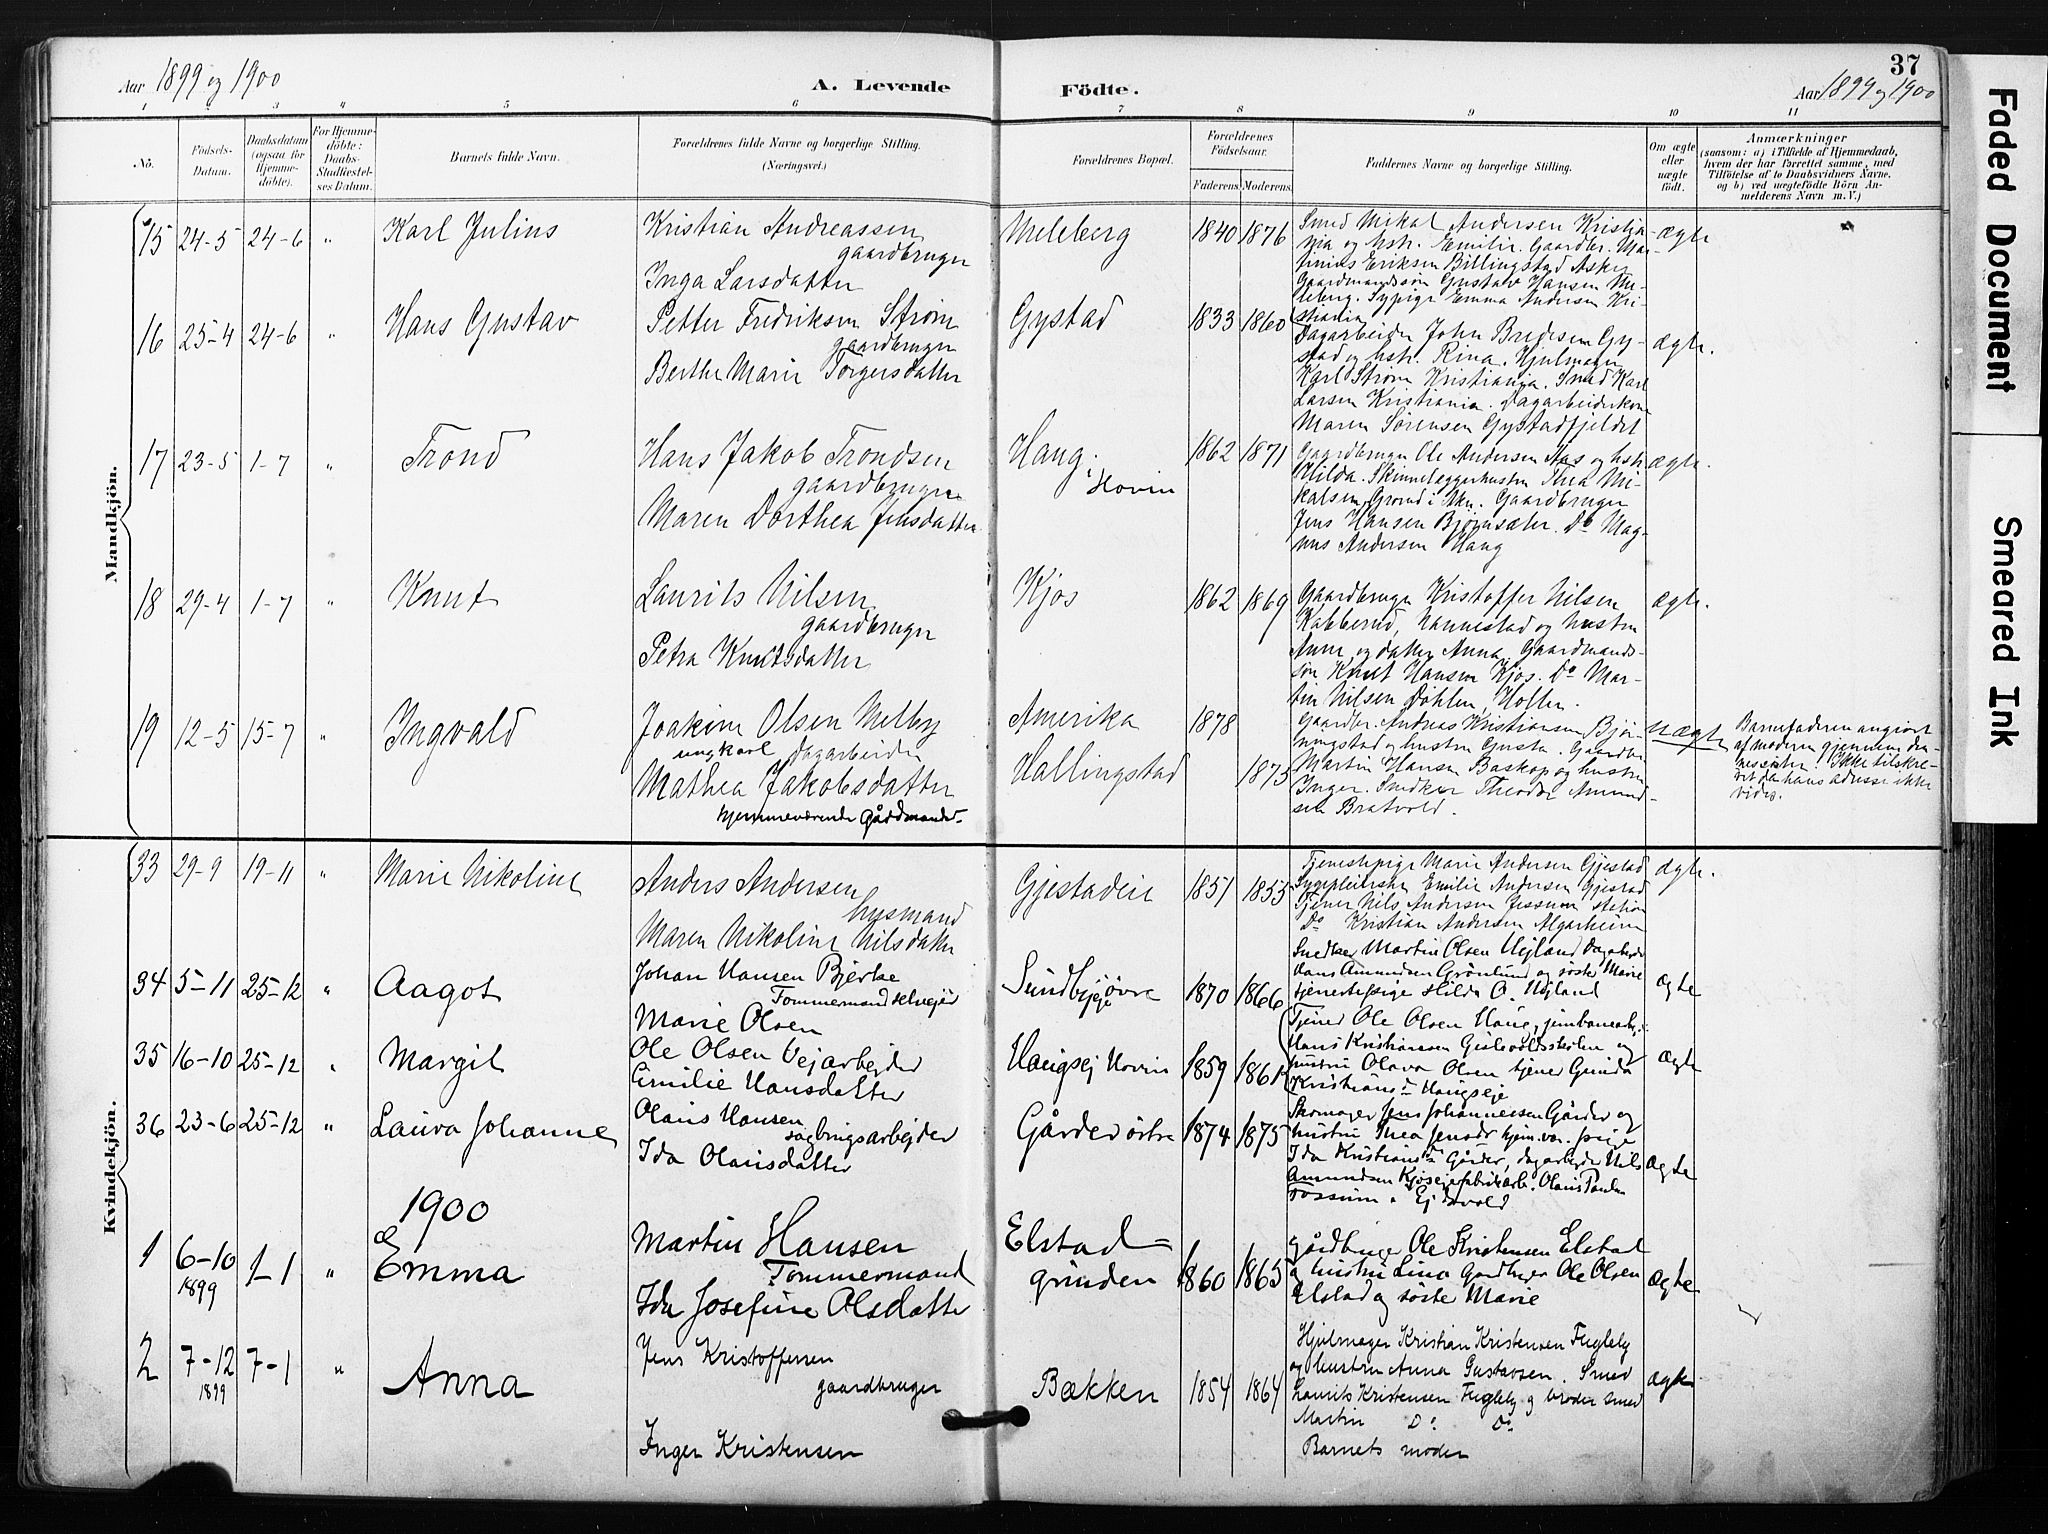 37
Aar 1899 og 1900
A. Levende
Födte.
Aar 1899 og 1900
1 2 3 4 5 6 7 8 9 10 11
No.
Födsels-
Datum.
Daabsdatum
(ogsaa for
Hjemme-
döbte).
For Hjemme-
döbte:
Daabs-
Stadfæstel-
ses Datum.
Barnets fulde Navn.
Forældrenes fulde Navne og borgerlige Stilling.
(Næringsvei.)
Forældrenes Bopæl.
Forældrenes
Födselsaar.
Faderens. Moderens.
Faddernes Navne og borgerlige Stilling.
Om ægte
eller
uægte
födt.
Anmærkninger
(saasom: a) i Tilfælde af Hjemmedaab,
hvem der har forrettet samme, med
Tilföielse af to Daabsvidners Navne,
og b) ved uægtefödte Börn An-
melderens Navn m. V.)
Mandkjön.
15 24-5 24-6 " Karl Julius
Kristian Andreassen
gaardbruger
Inga Larsdatter
Meleberg 1840 1876
Smed Mikal Andersen Kristia-
nia og hstr. Emilie. Gaardbr. Mar-
tinius Eriksen Billingstad Asker
Gaardmandssøn Gustav Hansen Me-
leberg. Sypige Emma Andersen Kri-
stiania
ægte
16 25-4 24-6 " Hans Gustav
Petter Fredriksen Strøm
gaardbruger
Berthe Marie Torgersdatter
Gystad 1833 1860
Dagarbeider John Bredesen Gy-
stad og hstr. Rina. Hjulmager
Karl Strøm Kristiania. Smed Karl
Larsen Kristiania. Dagarbeiderkone
Maren Sørensen Gystadfjeldet
ægte.
17 23-5 1-7 " Trond
Hans Jakob Trondsen
gaardbruger
Maren Dorthea Jensdatter
Haug i Hovin 1862 1871
Gaardbruger Ole Andersen Aas og hstr
Hilda. Skinnelæggerhustru Thea Mi-
kalsen Grønd i Akn. Gaardbruger
Jens Hansen Bjørnsæter. Do Mag-
nus Andersen Haug
ægte.
18 29-4 1-7 " Knut
Laurits Nilsen
gaardbruger
Petra Knutsdatter
Kjos 1862 1869
Gaardbruger Kristoffer Nilsen
Kabberud, Nannestad og hustru
Anne og datter Anna, Gaardmands-
søn Knut Hansen Kjos. Do Mar-
tin Nilsen Døhlen, Holter.
ægte.
19 12-5 15-7 " Ingvald
Joakim Olsen Melby
ungkarl dagarbeider
Mathea Jakobsdatter
hjemmeværende Gårdmandsd.
Amerika 1878
Hallingstad 1875
Gaardbr. Andreas Kristiansen Bjør-
ningstad og hustru Gusta. Gaardbr
Martin Hansen Baskop og hustru
Inger. Snedker Theodor Amund-
sen Bratvold.
uægte
Barnefaderen angivet
af moderen gjennem da-
Ikke tilskre-
vet da hans adresse ikke
vides.
Kvindekjön.
33 29-9 19-11 " Marie Nikoline
Anders Andersen
husmand
Maren Nikoline Nilsdatter
Gjestadeie 1851 1855
Tjenestepige Marie Andersen Gjestad
Sygepleierske Emilie Andersen Gjestad
Tjener Nils Andersen Jessum station
Do Kristian Andersen Algarheim
ægte.
34 5-11 25-12 " Aagot
Johan Hansen Bjerke
Tømmermand selveier
Marie Olsen
Sundbyeje øvre 1870 1866
Snedker Martin Olsen Uejland dagarbejder
Hans Amundsen Grønlund og søster Marie
tjenestepige Hilda O. Uejland
ægte
35 16-10 25-12 " Margit
Ole Olsen Vejarbejder
Emilie Hansdatter
Haugsej Hovin 1859 1861
Tjener Ole Olsen Haug, jernbanearbej.
Hans Kristiansen Gislevoldsstolen og
hustru Olava Olsen tjener Gunda
Kristiansd Haugseje
ægte
36 23-6 25-12 " Laura Johanne
Olaus Hansen
sagbrugsarbejder
Ida Olausdatter
Gårder østre 1874 1875
Skomager Jens Johannessen Gårder og
hustru Thea Jensdr hjem.vær. pige
Ida Kristiansd Gårder, dagarbejder Nils
Amundsen Kjoseje fabrikarb. Olaus Paulsen
Fossum i Ejdsvold
ægte
1900
1 6-10 1899 1-1 " Emma
Martin Hansen
Tømmermand
Ida Josefine Olsdatter
Elstad-
grunden 1860 1865
gårdbruger Ole Kristensen Elstad
og hustru Lina Gårdbruger Ole Olsen
Elstad og søster Marie
ægte
2 7-12 1899 7-1 " Anna
Jens Kristoffersen
gaardbruger
Inger Kristensen
Bækken 1854 1864
Hjulmager Kristian Kristensen Fugleby
og hustru Anna Gustavsen. Smed
Laurits Kristensen Fugleby og broder smed
Martin Do Do
Barnets moder
ægte
Faded Document
Smeared Ink